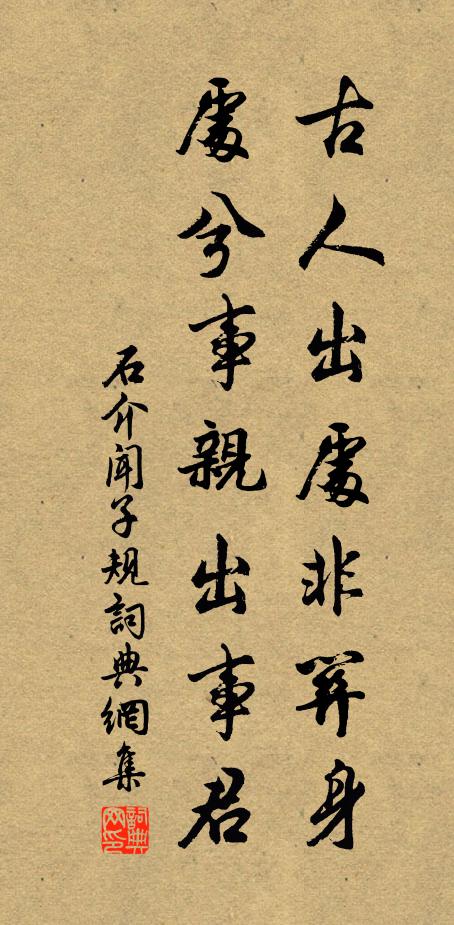 古人出處非關身
處兮事親出事君
石介聞子規詞典網集
詞典
网印